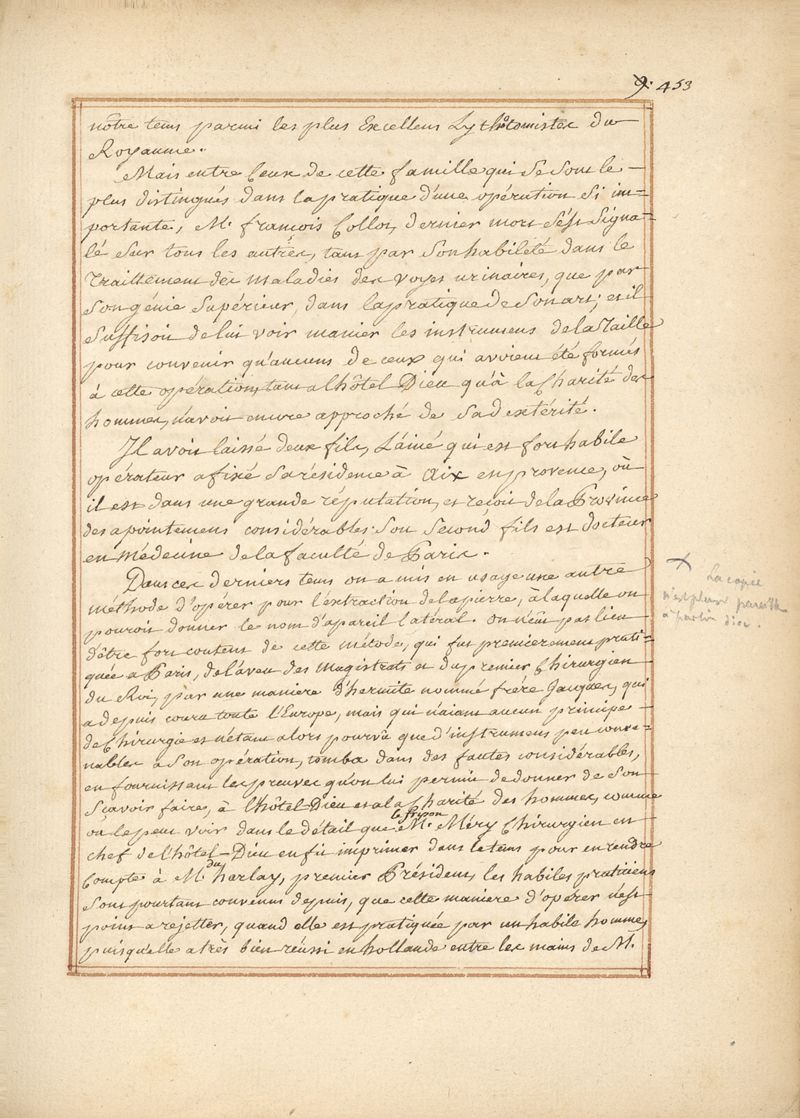 9. 453
nôtre tems parmi les plus Excellens Lythotomistes du
Royaume.
Mais entre Ceux de cette famille qui se sont le
plus distingués dans la pratique d'une opération si im-
portante, M. françois Collot, dernier mort s'est signa-
lé sur tous les autres, tant par son habileté dans le
traittement des maladies des voyes urinaires, que par
son génie supérieur, dans la pratique de son art; et il
suffisoit de lui voir manier les instrumens de la Taille
pour convenir qu'aucuns de ceux qui avoient été formés
à cette opération, tant a l'hôtel Dieu qu'à la Charité des
hommes, n'avoit encore approché de sa dextérité.
Il avoit laissé deux fils, L'ainé qui est fort habile
opérateur a fixé sa résidence à Aix en provence, où
il est dans une grande réputation, et reçoit de la Province
des apointemens considérables. Son second fils est docteur
en Médecine de la faculté de Paris.
Dans ces derniers tems on a mis en usage une autre
méthode d'opérer pour l'extraction de la pierre, à laquelle on
pouroit donner le nom d'apareil latéral. On n'eût pas lieu
d'être fort content de cette métode, qui fut premierement prati-
quée a Paris, de l'aveu des Magistrats et du premier Chirurgien
du Roi, par une maniere d'hermite nommé frére Jacques, qui
a depuis couru toute l'Europe, mais qui n'aiant aucun principe
de Chirurgie et n'étant alors pourvû que d'instrumens peu conve-
nables à son opération, tomba dans des fautes considérables,
en fournissant les preuves qu'on lui permit de donner de son
sçavoir faire, à l'hôtel Dieu et a la Charité des hommes, comme
on le peut voir dans le détail que M. Méry Chirurgien en
chef de l'hôtel-Dieu en fit imprimer dans le tems pour en rendre
Compte à M. du harlay, premier Président, les habiles praticiens
sont pourtant convenus depuis, que cette maniere d'opérer n'est
point a rejetter, quand elle est pratiquée par un habile homme,
puisqu'elle a très bien réussi en hollande entre les mains de M.
La copie
n'est plus
à partir d'ici.